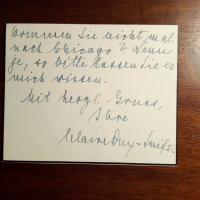 kommen Sie nicht mal
nach Chicago? Wenn
je, so bitte lassen Sie es
mich wissen.
Mit herzl. Gruss,
Ihre
Claire Dux-Swift.